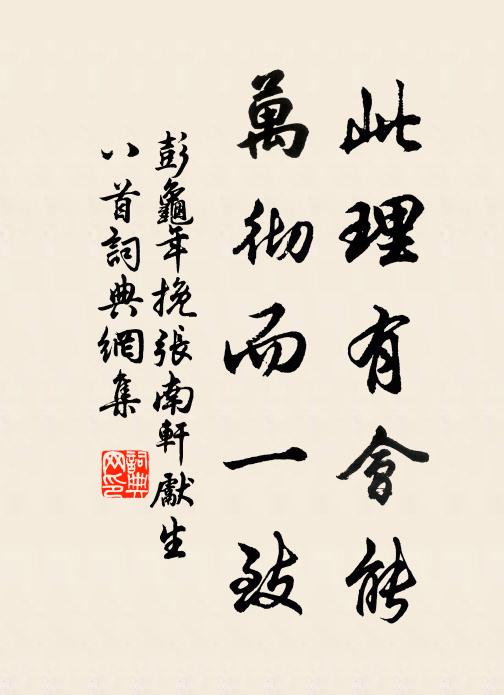 此理有會能
萬彻而一致
彭龜年挽張南軒獻生
八首詞典網集
詞典网印